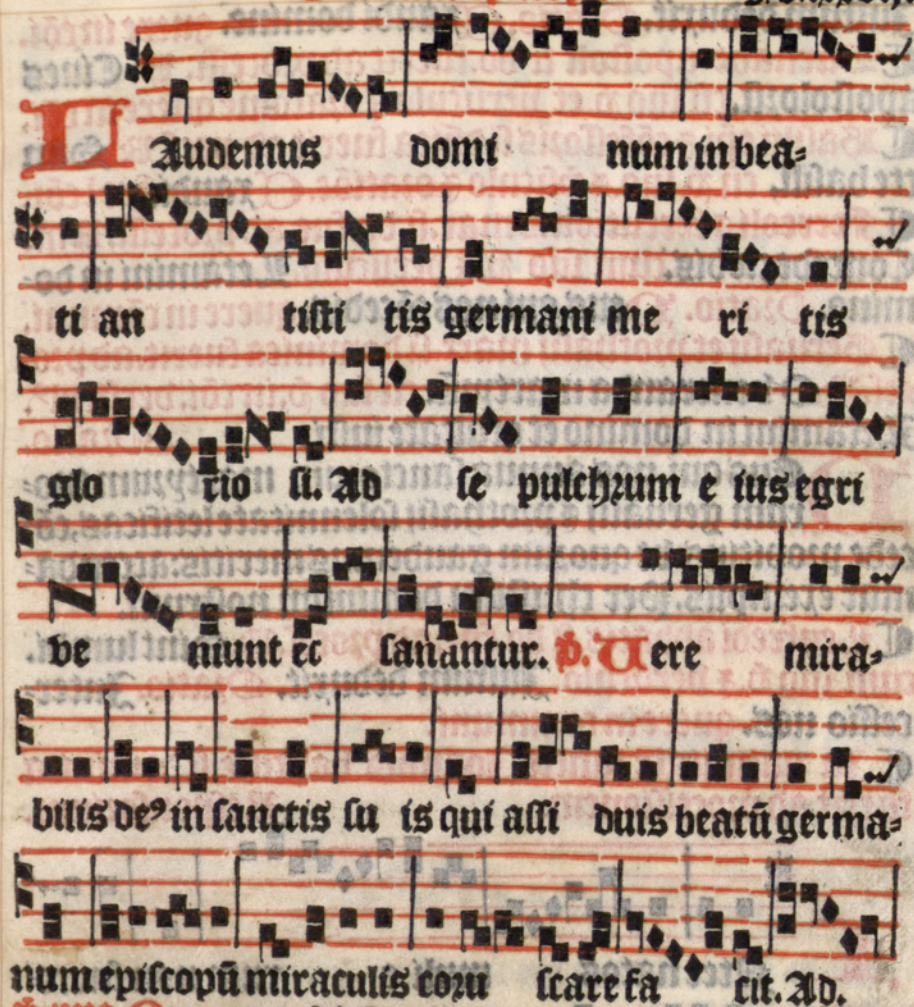 LAudemus domi num in bea-
ti an tisti tis germani me ri tis
glo rio si. Ad se pulchrum e ius egri
ve niunt et sanantur. ℣. Vere mira-
bilis deꝰ in sanctis su is qui assi duis beatū germa-
num episcopū miraculis coru scare fa cit. Ad.